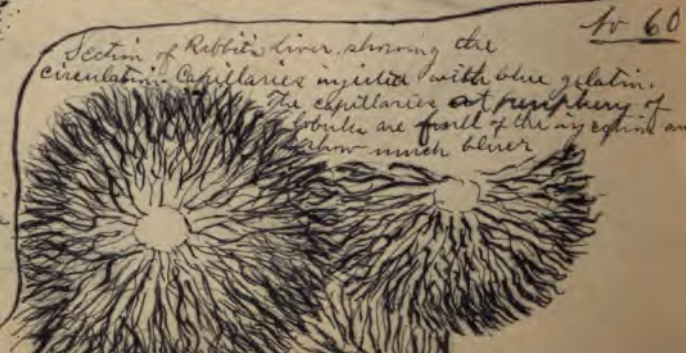 No 60
Section of Rabbit's Liver, showing the
circulation. Capillaries injected with blue gelatin.
The capillaries at periphery of
lobules are full of the injection and
show much bluer